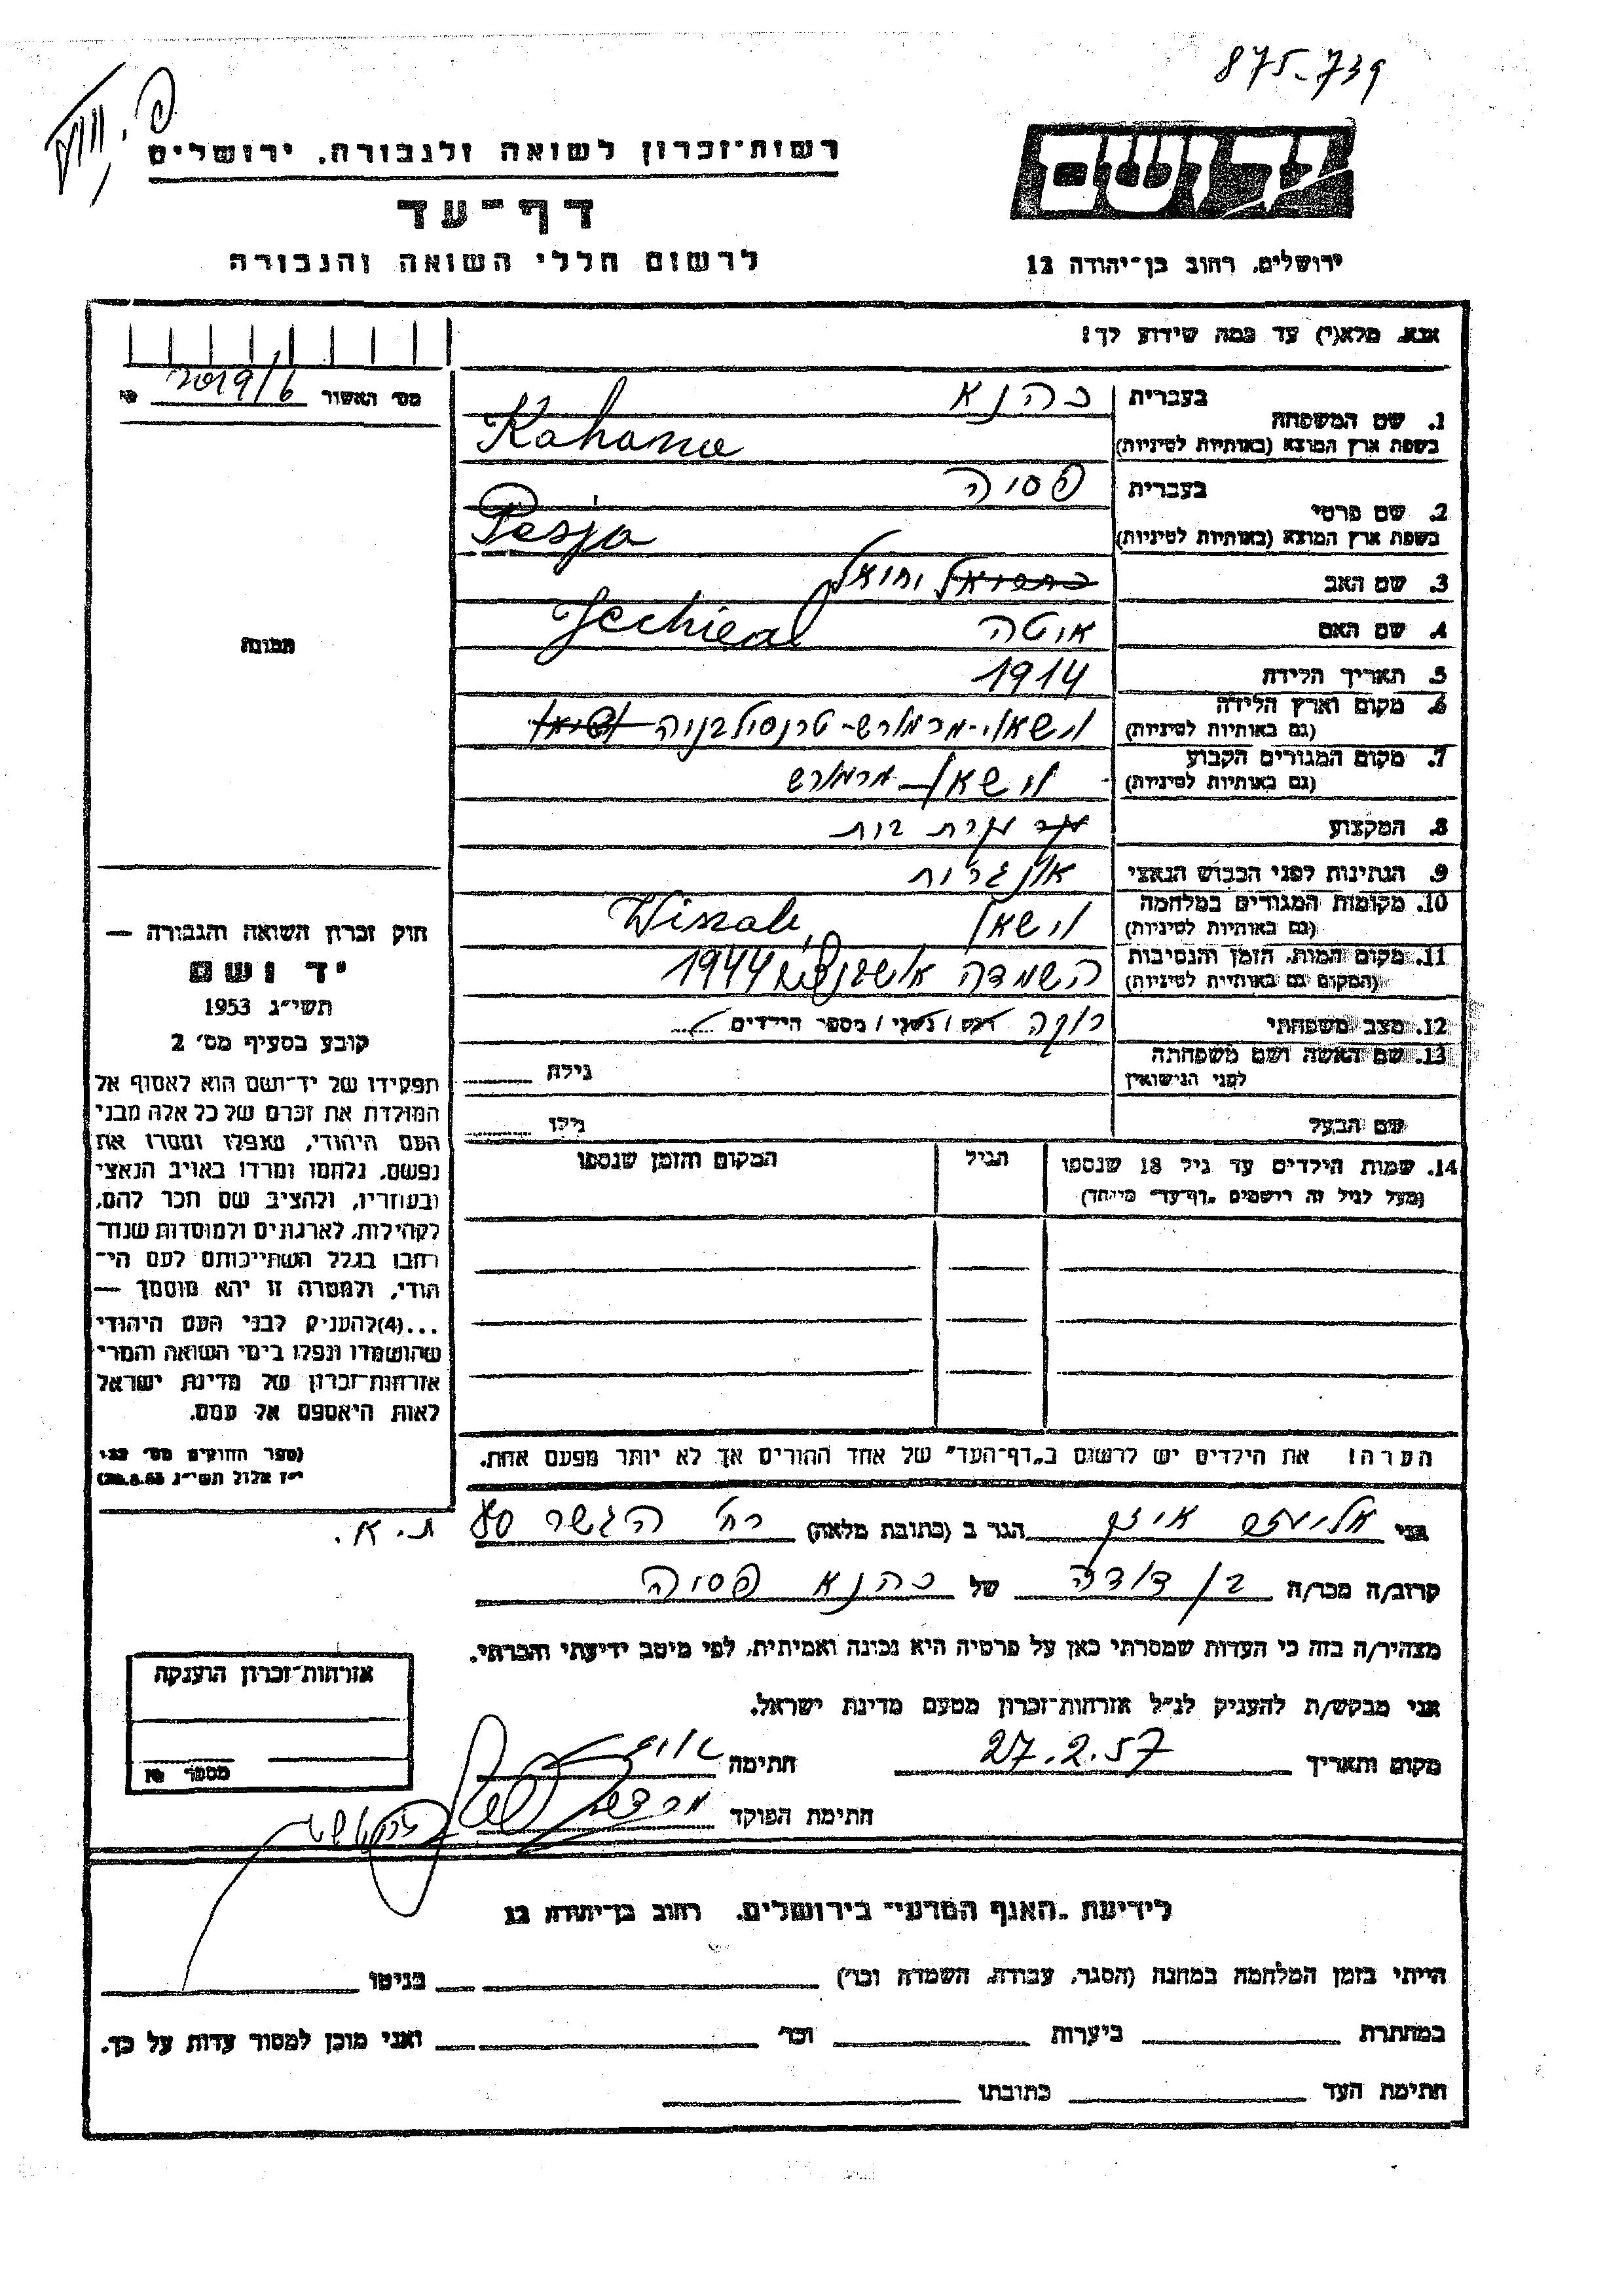 875-739
יד ושם
רשות-זכרון לשואה ולגבורה, ירושלים
דף-עד
לרשום חללי השואה והגבורה
ירושלים, רחוב בן-יהודה 12
אנא, מלא(י) עד כמה שידוע לך!
מס׳ האשור 2019/6 №
1. שם המשפחה
בעברית כהנא
בשפת ארץ המוצא (באותיות לטיניות) Kahana
2. שם פרטי
בעברית פסיה
בשפת ארץ המוצא (באותיות לטיניות) Pesja
3. שם האב יחיאל
Jechieal
4. שם האם איטה
5. תאריך הלידה 1914
6. מקום וארץ הלידה
(גם באותיות לטיניות) ווישאו-מרמורש-טרנסילבניה
7. מקום המגורים הקבוע
(גם באותיות לטיניות) ווישאו-מרמורש
8. המקצוע עקרת בית
9. הנתינות לפני הכבוש הנאצי אונגרית
10. מקומות המגורים במלחמה
(גם באותיות לטיניות) ווישאו
11. מקום המות, הזמן והנסיבות
(המקום גם באותיות לטיניות) השמדה אושוויץ 1944
12. מצב משפחתי רוקה רווק / נשוי / מספר הילדים
13. שם האשה ושם משפחתה
לפני הנישואין
גילה
שם הבעל
גילו
14. שמות הילדים עד גיל 18 שנספו
(מעל לגיל זה רושמים „דף-עד״ מייחד)
הגיל
המקום והזמן שנספו
הערה! את הילדים יש לרשום ב„דף-העד״ של אחד ההורים אך לא יותר מפעם אחת.
תמונה
חוק זכרון השואה והגבורה —
יד ושם
תשי״ג 1953
קובע בסעיף מס׳ 2
תפקידו של יד-ושם הוא לאסוף אל
המולדת את זכרם של כל אלה מבני
העם היהודי, שנפלו ומסרו את
נפשם, נלחמו ומרדו באויב הנאצי
ובעוזריו, ולהציב שם וזכר להם,
לקהילות, לארגונים ולמוסדות שנח־
רבו בגלל השתייכותם לעם הי־
הודי, ולמטרה זו יהא מוסמך —
...(4)להעניק לבני העם היהודי
שהושמדו ונפלו בימי השואה והמרי
אזרחות-זכרון של מדינת ישראל
לאות היאספם אל עמם.
(ספר החוקים מס׳ 132
י״ז אלול תשי״ג 28.8.53)
אני הגר ב (כתובת מלאה) רח׳ הגשר 80 ת.א.
קרוב/ה מכר/ה בן דודה של כהנא פסיה
מצהיר/ה בזה כי העדות שמסרתי כאן על פרטיה היא נכונה ואמיתית, לפי מיטב ידיעתי והכרתי.
אני מבקש/ת להעניק לנ״ל אזרחות-זכרון מטעם מדינת ישראל.
מקום ותאריך 27.2.57 חתימה
חתימת הפוקד
אזרחות-זכרון הוענקה
מספר №
לידיעת „האגף המדעי״ בירושלים, רחוב בן-יהודה 12
הייתי בזמן המלחמה במחנה (הסגר, עבודה, השמדה וכו׳) בגיטו
במחתרת ביערות וכו׳ ואני מוכן למסור עדות על כך.
חתימת העד כתובתו